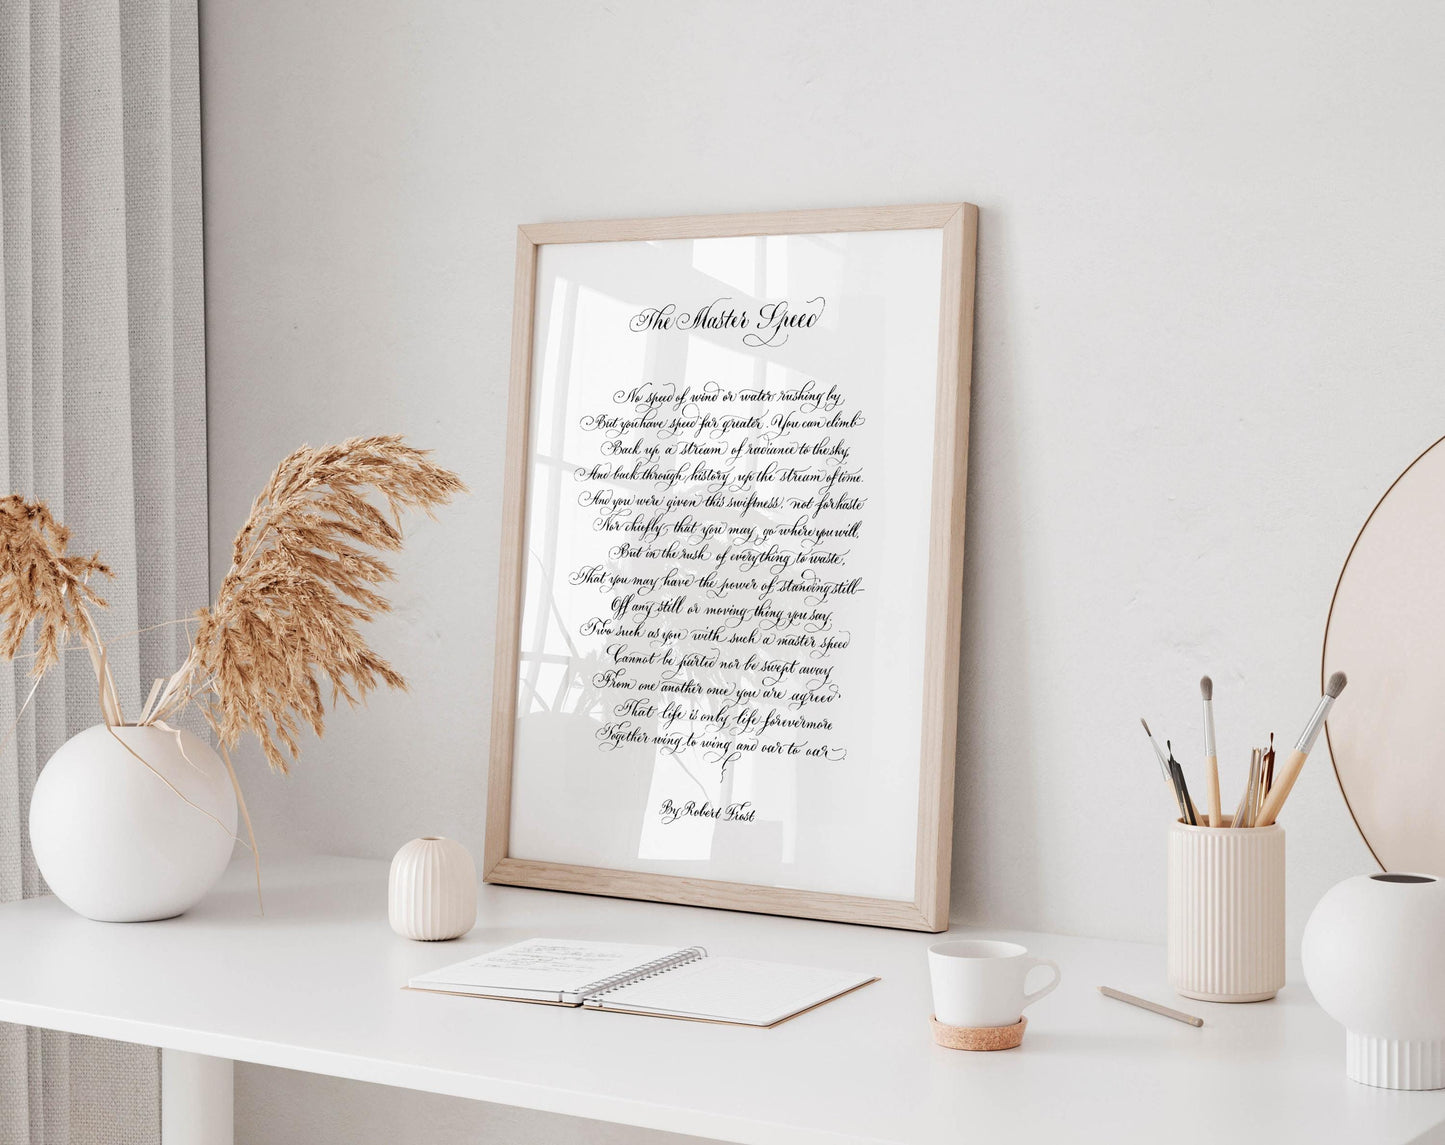 The Master Speed
No speed of wind or water rushing by
But you have speed far greater. You can climb
Back up a stream of radiance to the sky,
And back through history up the stream of time.
And you were given this swiftness, not for haste
Nor chiefly that you may go where you will,
But in the rush of everything to waste,
That you may have the power of standing still—
Off any still or moving thing you say.
Two such as you with such a master speed
Cannot be parted nor be swept away
From one another once you are agreed
That life is only life forevermore
Together wing to wing and oar to oar.
By Robert Frost